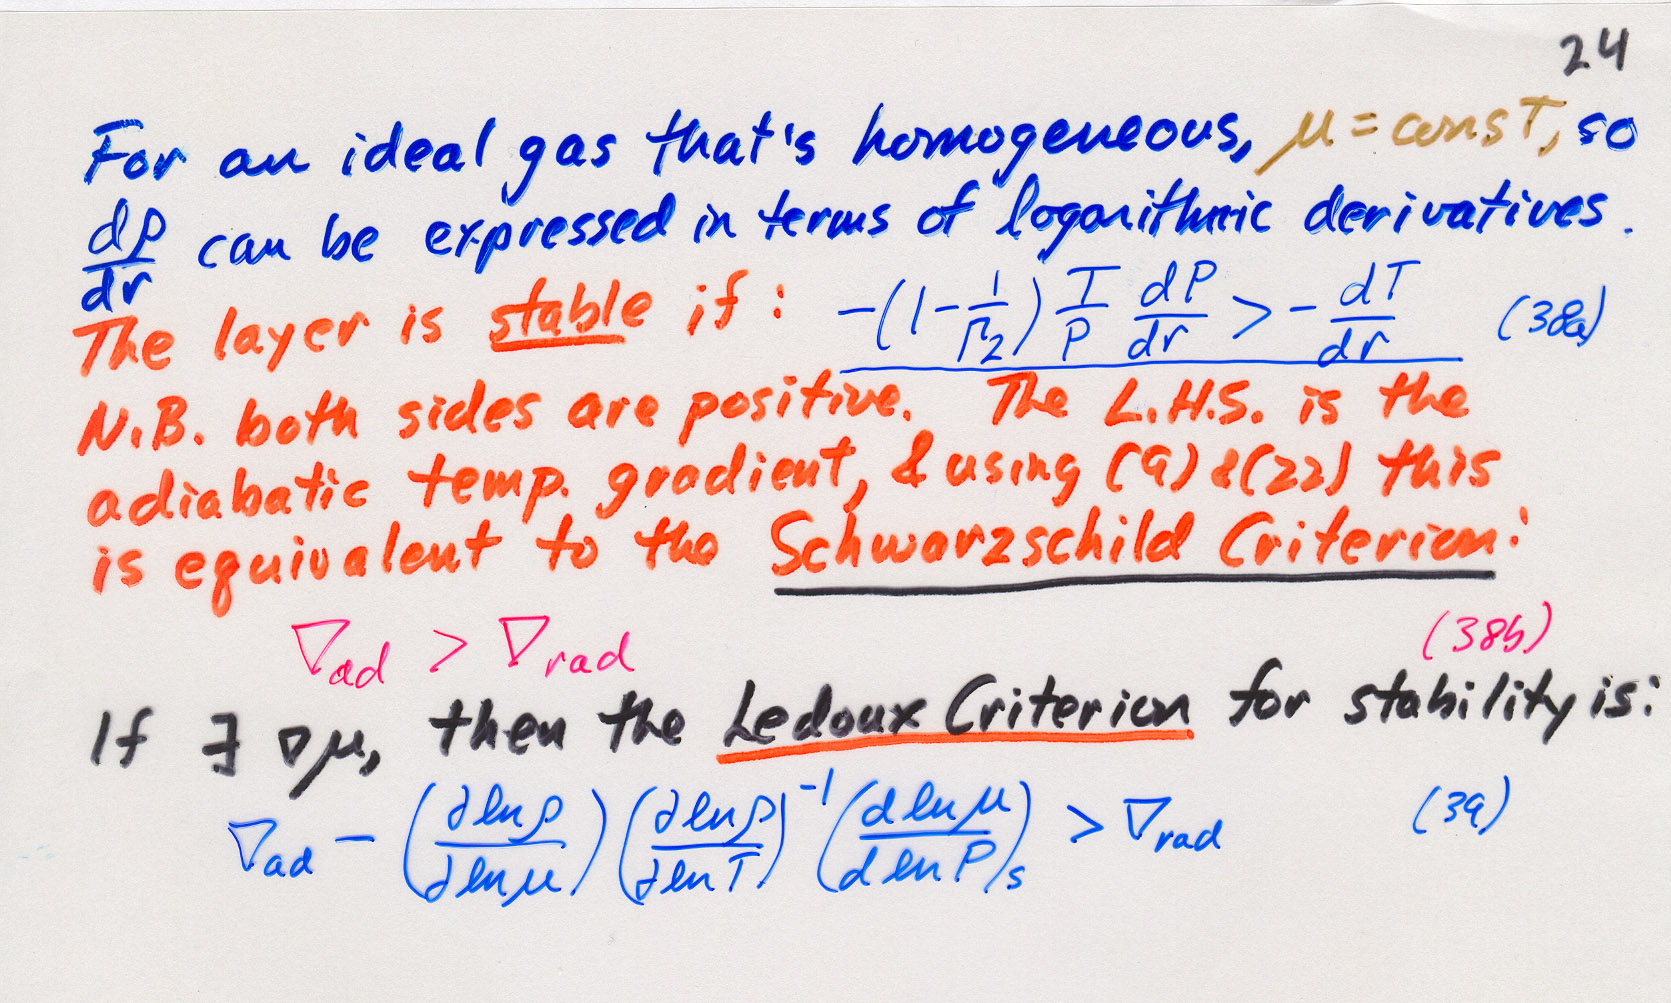 24
For an ideal gas that's homogeneous, μ = consT, so
dρ/dr can be expressed in terms of logarithmic derivatives.
The layer is stable if: -(1-1/Γ₂) T/P dP/dr > - dT/dr (38a)
N.B. both sides are positive. The L.H.S. is the
adiabatic temp. gradient, & using (9) & (22) this
is equivalent to the Schwarzschild Criterion:
∇ad > ∇rad (38b)
If ∃ ∇μ, then the Ledoux Criterion for stability is:
∇ad - (∂lnρ/∂lnμ) (∂lnρ/∂lnT)⁻¹ (dlnμ/dlnP)s > ∇rad (39)